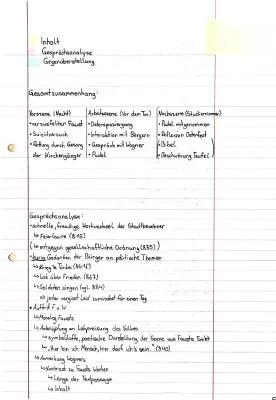 Inhalt
Gesprächsanalyse
Gegenüberstellung
Gesamtzusammenhang:
Vorszene (Nacht)
• verzweifelter Faust
• Suizidversuch
• Rettung durch Gesang
der Kirchengänger
Arbeitsszene (Vor dem Tor)
• Osterspaziergang
• Interaktion mit Bürgern
• Gespräch mit Wagner
• Pudel
Nachszene (Studierzimmer)
• Pudel mitgenommen
• Reflexion Osterfest
• Bibel
• Beschwörung Teufel
Gesprächsanalyse:
• schnelle, freudige Wortwechsel der Stadtbewohner
↳ Feierlaune (845)
(↳ entgegen gesellschaftliche Ordnung (875))
• Gedanken der Bürger an politische Themen
↳ Krieg in Türkei
↳ Lob über Frieden (867)
↳ Soldaten singen (vgl. 884)
↳ jeder vergisst Leid zumindest für einen Tag
• Auftritt F. u. W
↳ Monolog Fausts
↳ Anknüpfung an Lobpreisung des Volkes
↳ symbolhafte, poetische Darstellung der Szene aus Fausts Sicht
↳ "Hier bin ich Mensch, hier darf ich's sein" (940)
↳ Anmerkung Wagners
↳ Kontrast zu Fausts Worten
↳ Länge der Textpassage
↳ Inhalt